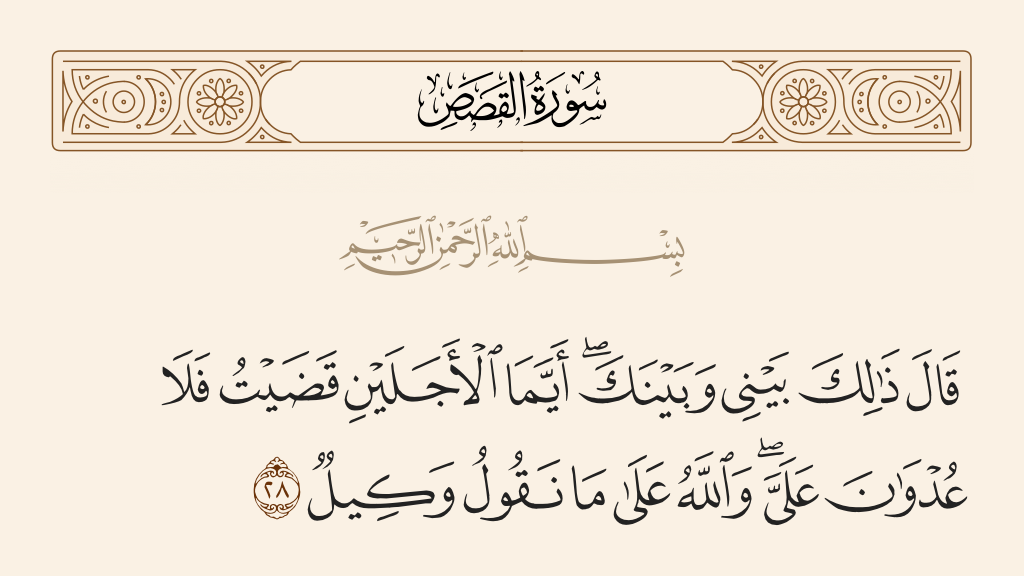 سُورَةُ القَصَصِ
بِسْمِ ٱللَّهِ ٱلرَّحْمَٰنِ ٱلرَّحِيمِ
قَالَ ذَٰلِكَ بَيْنِى وَبَيْنَكَ ۖ أَيَّمَا ٱلْأَجَلَيْنِ قَضَيْتُ فَلَا
عُدْوَٰنَ عَلَىَّ ۖ وَٱللَّهُ عَلَىٰ مَا نَقُولُ وَكِيلٌ ٢٨